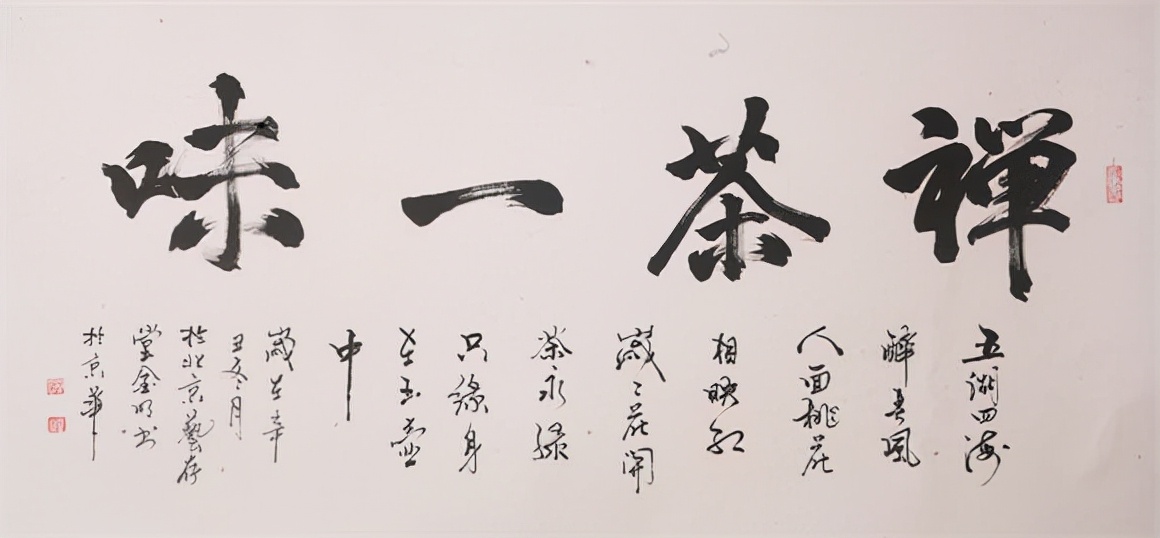 禅茶一味
五湖四海
醉春風
人面桃花
相映红
歲々花開
茶永绿
只緣身
在玉壺
中
歲在辛
丑冬月
於北京藝存
堂金明书
於京華